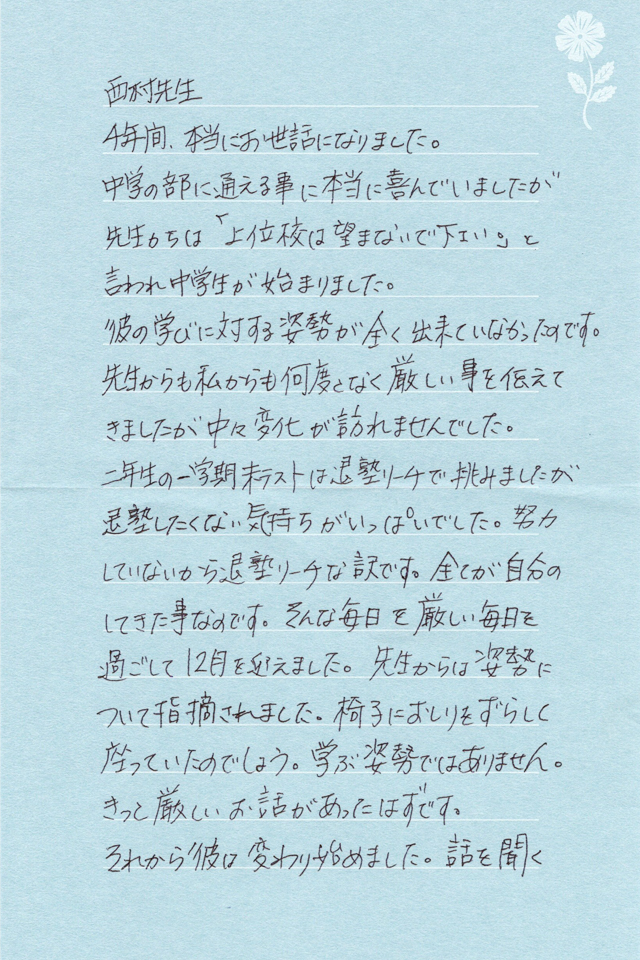 西村先生
4年間、本当にお世話になりました。
中学の部に通える事に本当に喜んでいましたが
先生からは「上位校は望まないで下さい。」と
言われ中学生が始まりました。
彼の学びに対する姿勢が全く出来ていなかったのです。
先生からも私からも何度となく厳しい事を伝えて
きましたが中々変化が訪れませんでした。
二年生の一学期末テストは退塾リーチで挑みましたが
退塾したくない気持ちがいっぱいでした。努力
していないから退塾リーチな訳です。全てが自分の
してきた事なのです。そんな毎日を厳しい毎日を
過ごして12月を迎えました。先生からは姿勢に
ついて指摘されました。椅子におしりをずらしく
座っていたのでしょう。学ぶ姿勢ではありません。
きっと厳しいお話があったはずです。
それから彼は変わり始めました。話を聞く